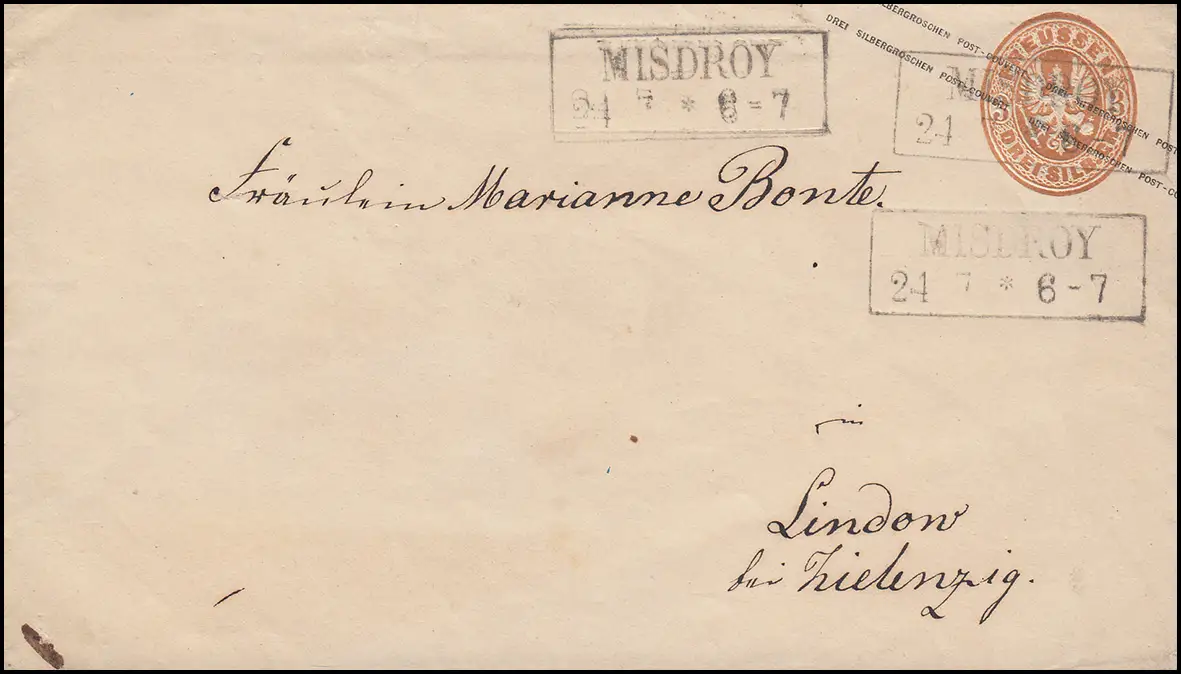 MISDROY
24 7 * 6-7
SILBERGROSCHEN POST-COUVERT DREI SILBERGROSCHEN POST
DREI SILBERGROSCHEN POST-COUVERT DREI SILBERGROSCHEN POST-CO
PREUSSEN
3 3
DREI SILB.
24
Fräulein Marianne Bonte.
MISDROY
24 7 * 6-7
in
Lindow
bei Zielenzig.